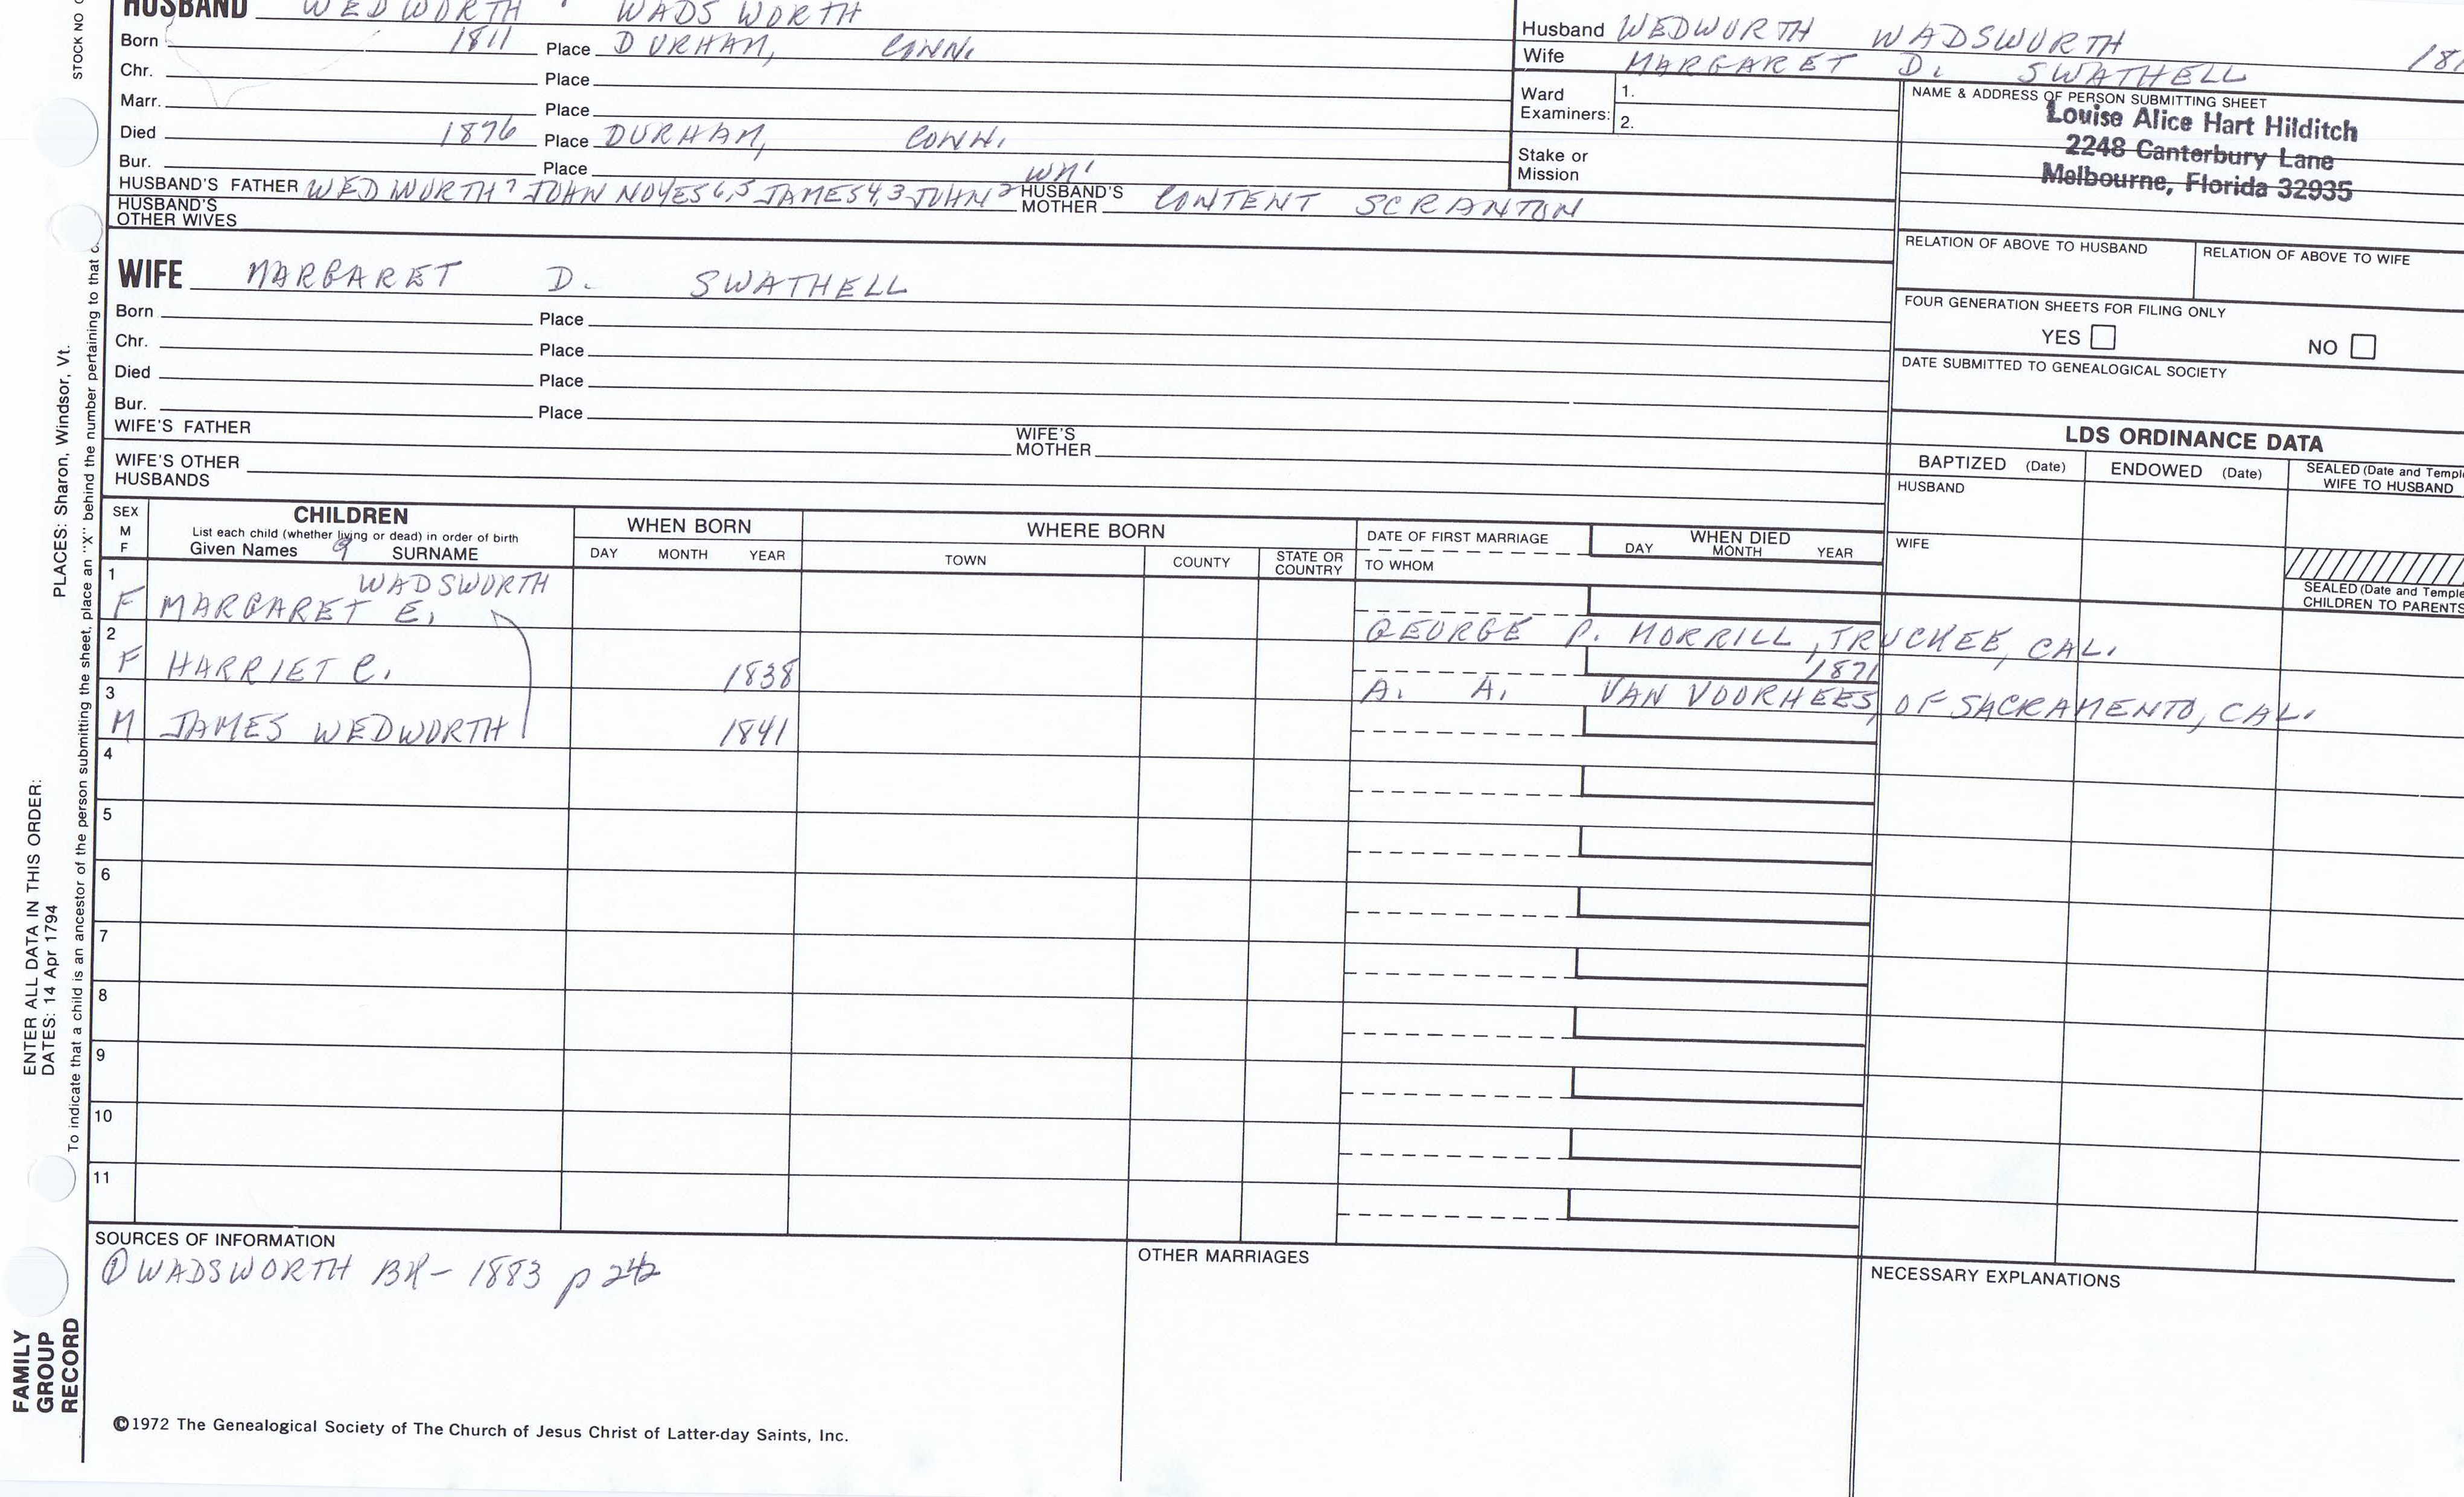 HUSBAND WEDWORTH WADSWORTH
Born 1811 Place DURHAM, CONN.
Chr. Place
Marr. Place
Died 1876 Place DURHAM, CONN.
Bur. Place
HUSBAND'S FATHER WEDWORTH 7 JOHN NOYES 6,5 JAMES 4,3 JOHN 2 WM 1 HUSBAND'S MOTHER CONTENT SCRANTON
HUSBAND'S OTHER WIVES
WIFE MARGARET D. SWATHELL
Born Place
Chr. Place
Died Place
Bur. Place
WIFE'S FATHER WIFE'S MOTHER
WIFE'S OTHER HUSBANDS
Husband WEDWORTH WADSWORTH
Wife MARGARET D. SWATHELL
Ward Examiners: 1.
2.
Stake or Mission
NAME & ADDRESS OF PERSON SUBMITTING SHEET
Louise Alice Hart Hilditch
2248 Canterbury Lane
Melbourne, Florida 32935
RELATION OF ABOVE TO HUSBAND RELATION OF ABOVE TO WIFE
FOUR GENERATION SHEETS FOR FILING ONLY
YES NO
DATE SUBMITTED TO GENEALOGICAL SOCIETY
LDS ORDINANCE DATA
BAPTIZED (Date) ENDOWED (Date) SEALED (Date and Temple
WIFE TO HUSBAND
HUSBAND
WIFE
SEALED (Date and Temple
CHILDREN TO PARENTS
SEX M F CHILDREN WHEN BORN WHERE BORN DATE OF FIRST MARRIAGE WHEN DIED
List each child (whether living or dead) in order of birth
Given Names SURNAME DAY MONTH YEAR TOWN COUNTY STATE OR COUNTRY TO WHOM DAY MONTH YEAR
1 WADSWORTH
F MARGARET E.
GEORGE P. MORRILL, TRUCKEE, CAL.
2 F HARRIET C. 1838 1871
A. A. VAN VOORHEES, OF SACRAMENTO, CAL.
3 M JAMES WEDWORTH 1841
4
5
6
7
8
9
10
11
SOURCES OF INFORMATION
① WADSWORTH BK - 1883 p 242
OTHER MARRIAGES
NECESSARY EXPLANATIONS
©1972 The Genealogical Society of The Church of Jesus Christ of Latter-day Saints, Inc.
STOCK NO
PLACES: Sharon, Windsor, Vt.
ENTER ALL DATA IN THIS ORDER:
DATES: 14 Apr 1794
To indicate that a child is an ancestor of the person submitting the sheet, place an "X" behind the number pertaining to that
FAMILY
GROUP
RECORD